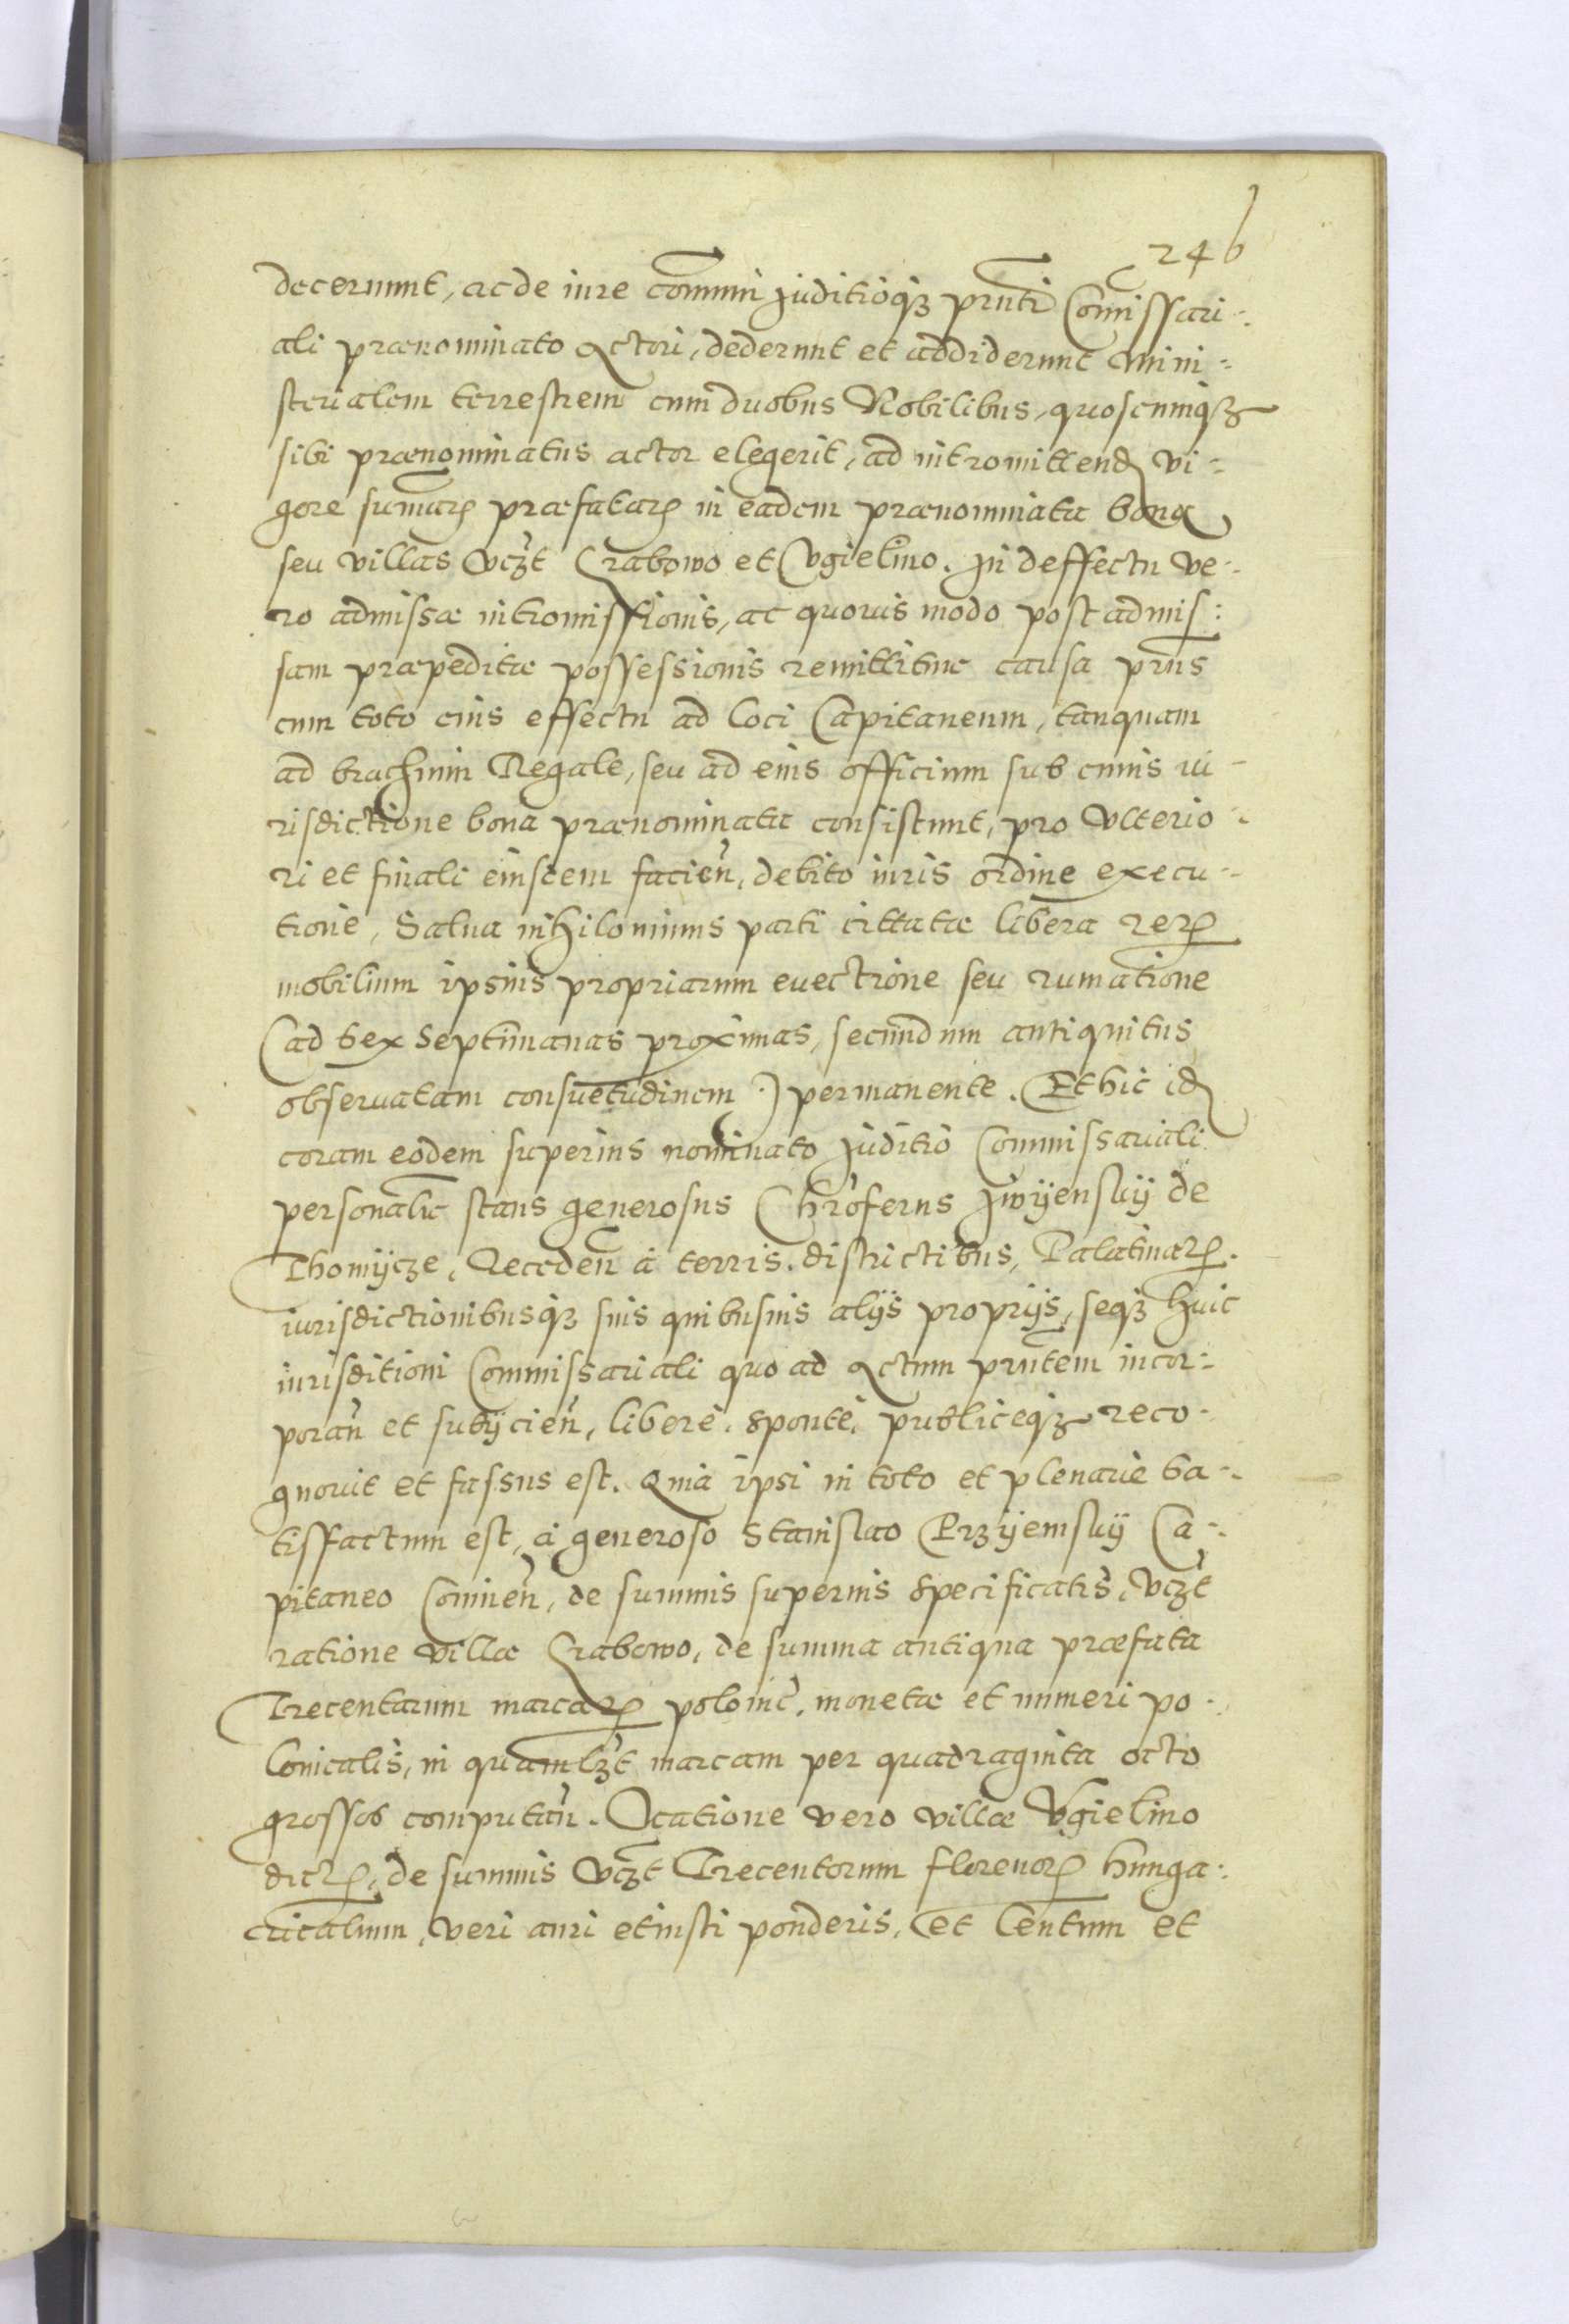 246
decernunt, ac de iure com̄uni Juditioq3 pn̄ti Com̄issari-
ali prænominato Actori, dederunt et addiderunt mini-
sterialem terrestrem cum duobus Nobilibus, quoscunq3
sibi prænominatus actor elegerit, ad intromittend vi-
gore sum̄ar præfatar in eadem prænominata bona
seu villas vcz̄t Grabowo et Vgielino. In deffectu ve-
ro admissæ intromissionis, ac quovis modo post admis:
sam præpeditæ possessionis remittitur causa pn̄s
cum toto eius effectu ad loci Capitaneum, tanquam
ad brachium Regale, seu ad eius officium sub cuius iu-
risdictione bona prænominata consistunt, pro vlterio-
ri et finali eiusdem facien̄, debito iuris ordine execu-
tione, Salva nihilominus parti cittatæ libera rer
mobilium ipsius propriarum evectione seu rumatione
(ad sex septimanas proximas, secundum antiquitus
observatam consvetudinem) permanente. Et hic id
coram eodem superius nominato Juditio Commissariali
personalr stans generosus Chrōferus Jwyensky de
Thomycze, Receden̄ à terris, districtibus, Palatinar.
iurisdictionibusq3 suis quibusvis alys proprys, seq3 huic
iurisditioni Commissariali quo ad Actum pn̄tem incor-
poran̄ et subycien̄, libere, sponte, publiceq3 reco-
gnovit et fassus est. Quia ipsi in toto et plenarie sa-
tisfactum est, à generoso Stanislao Przyemsky Ca-
pitaneo Coninen̄, de summis supernis specificatis, vcz̄t
ratione villæ Grabowo, de summa antiqua præfata
Trecentarum marcar polonic̄. monetæ et numeri po-
lonicalis, in quamlz̄t marcam per quadraginta octo
grossos computan̄. Ratione vero villæ Vgielino
dictr, de summis vcz̄t Trecentorum florenor hunga-
ricalium, veri auri et iusti ponderis, et Centum et